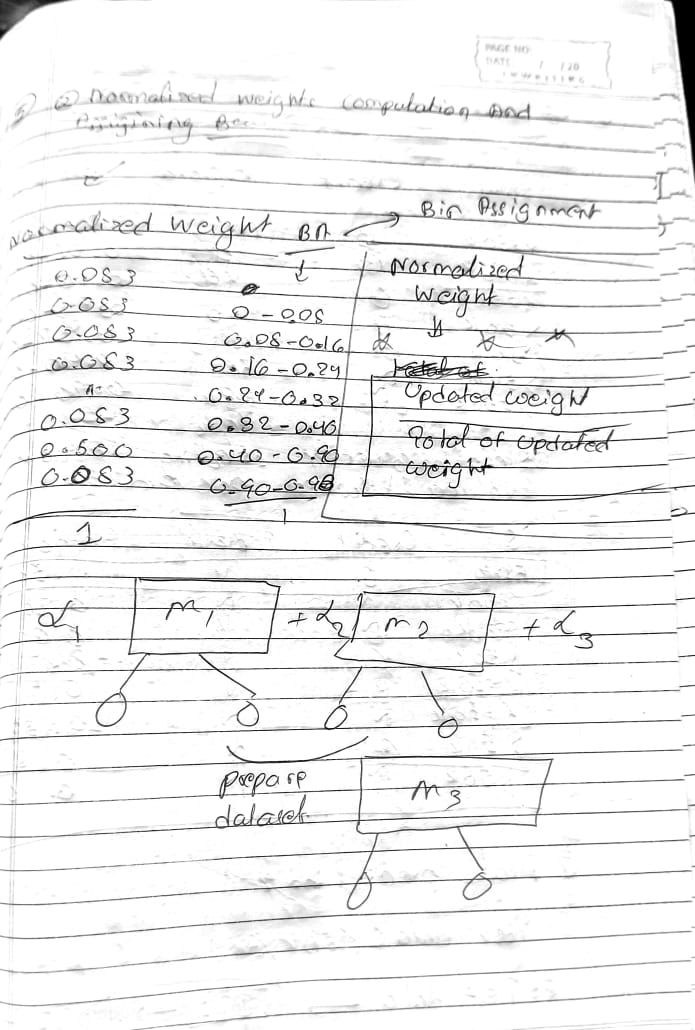 PAGE NO.
DATE / /20
② Normalized weights computation And
Assigining
Normalized Weight BA → Bin Assignment
0.083
0.083 0 - 0.08
0.083 0.08 - 0.16
0.083 0.16 - 0.24
0.24 - 0.32
0.083 0.32 - 0.40
0.500 0.40 - 0.90
0.083 0.90 - 0.98
1 1
Normalized
Weight
Updated weight
Total of updated
weight
α1 M1 + α2 M2 + α3
prepare
dataset
M3